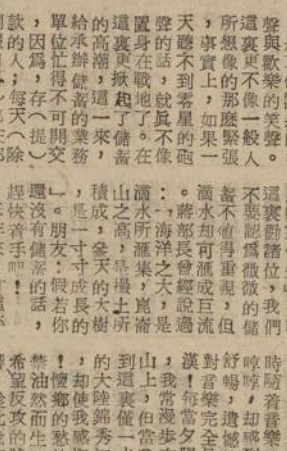 聲與歡樂的笑聲。
這裏更不像一般人
所想像的那麼緊張
，事實上，如果一
天聽不到零星的砲
聲的話，就眞不像
置身在戰地了。在
這裏更掀起了儲蓄
的高潮，這一來，
給承辦儲蓄的業務
單位忙得不可開交
，因爲，存（提）
款的人；每天（除
這裏勸諸位，我們
不要認爲微微的儲
蓄不値得重視，但
滴水却可滙成巨流
。蔣部長曾經說過
：「海洋之大，是
滴水所滙集，崑崙
山之高，是撮土所
積成，參天的大樹
，是一寸寸成長的
」。朋友：假若你
還沒有儲蓄的話，
趕快着手吧！
時隨着音樂
哼哼，却感
舒暢，遺憾
對音樂完全
漢！每當夕
，我常漫步
山上，但當
到這裏僅一
的大陸錦秀
，却使我感
！懷鄉的愁
禁油然而生
希望反攻的